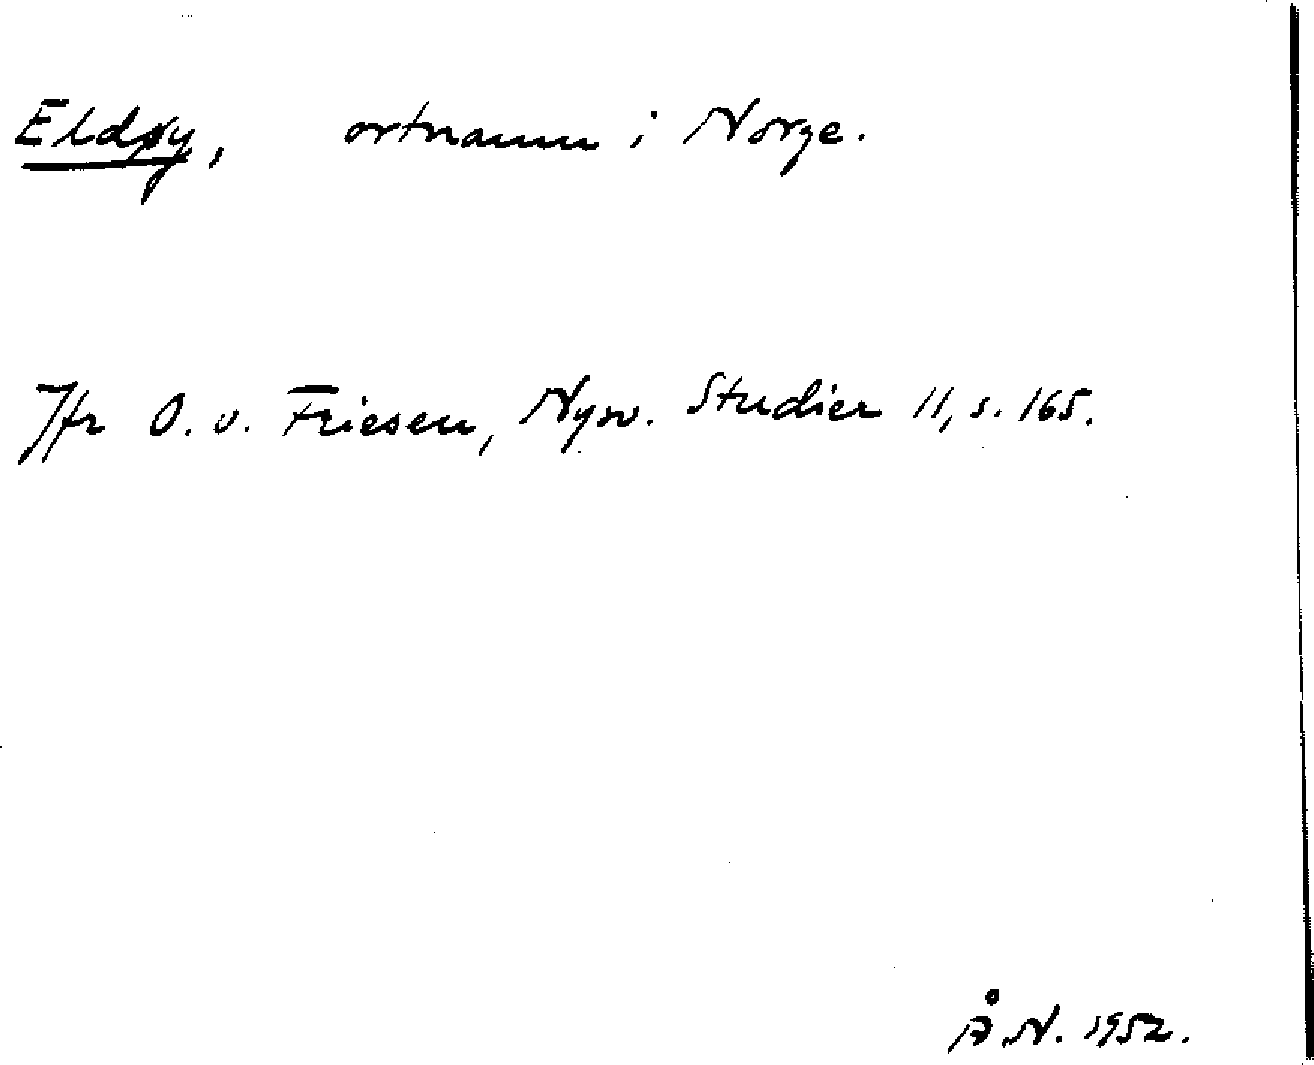 Eldøy, ortnamn i Norge.
Jfr O. v. Friesen, Nysv. Studier 11, s. 165.
Å.N. 1952.